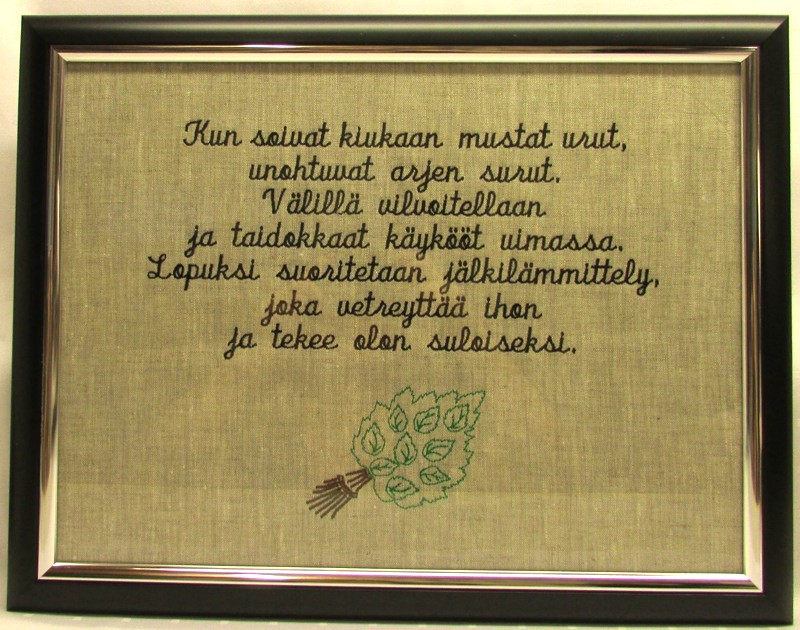 Kun soivat kiukaan mustat urut,
unohtuvat arjen surut.
Välillä vilvoitellaan
ja taidokkaat käykööt uimassa.
Lopuksi suoritetaan jälkilämmittely,
joka vetreyttää ihon
ja tekee olon suloiseksi.